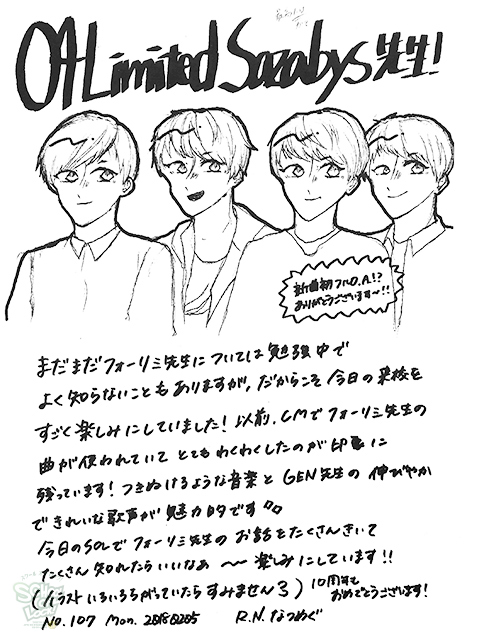 04 Limited Sazabys先生!
新曲初フルO.A!?
ありがとうございます〜!!
まだまだフォーリミ先生については勉強中で
よく知らないこともありますが、だからこそ今日の来校を
すごく楽しみにしていました!以前、CMでフォーリミ先生の
曲が使われていてとてもわくわくしたのが印象に
残っています!つきぬけるような音楽とGEN先生の伸びやか
できれいな歌声が魅力的です
今日のSOLでフォーリミ先生のお話をたくさんきいて
たくさん知れたらいいなぁ〜〜楽しみにしています!!
(イラストいろいろちがっていたらすみません3) 10周年も
おめでとうございます!
No.107 Mon. 20180205 R.N.なつめぐ